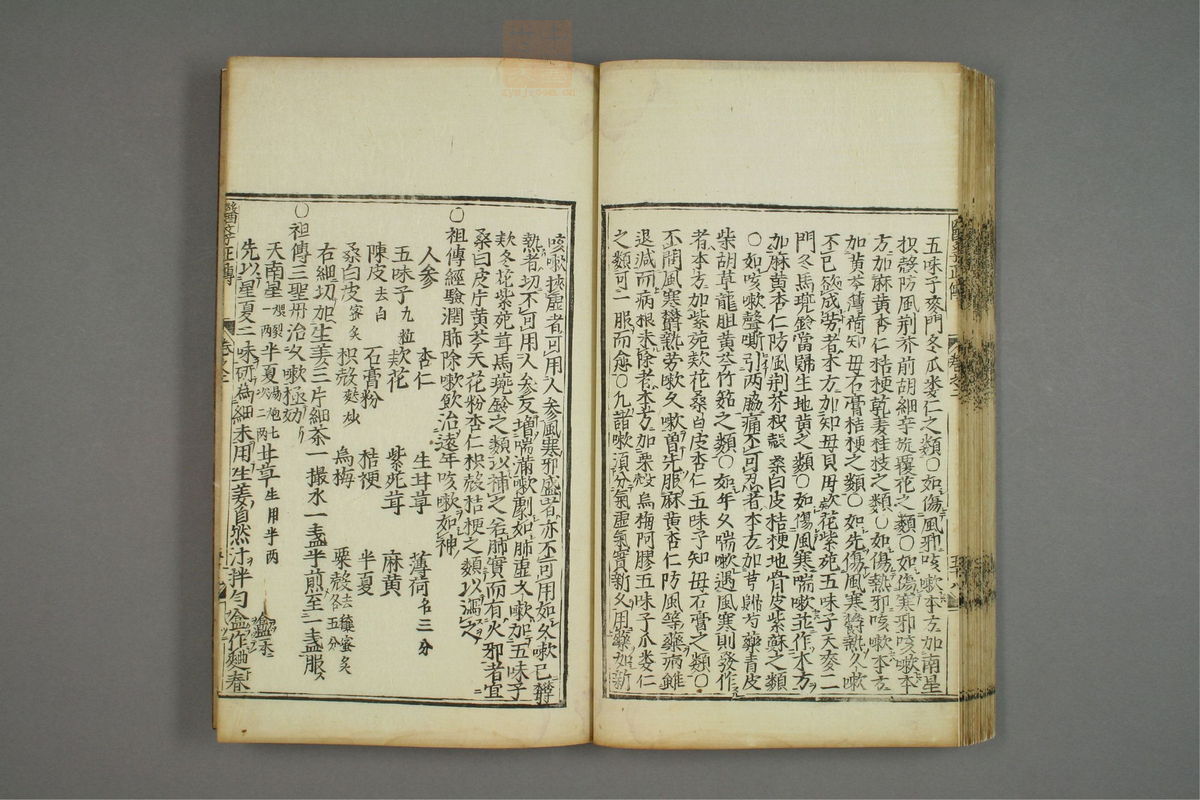 五味子麥門冬瓜蔞仁之類○如傷風邪咳嗽本方加南星
枳殼防風荆芥前胡細辛旋覆花之類○如傷寒邪咳嗽本
方加麻黄杏仁桔梗乾姜桂枝之類○如傷熱邪咳嗽本方
加黄芩薄荷知母石膏桔梗之類○如先傷風寒欝熱久嗽
不已欲成労者本方加知母貝母欵花紫菀五味子天麥二
門冬馬兜鈴當歸生地黄之類○如傷風寒喘嗽並作本方
加麻黄杏仁防風荆芥枳殼桑白皮桔梗地骨皮紫蘇之類
○如咳嗽聲嘶引両脇痛不可忍者本方加芎歸芍藥青皮
柴胡草龍胆黄芩竹茹之類○如年久喘嗽遇風寒則發作
者本方加紫菀欵花桑白皮杏仁五味子知母石膏之類○
不問風寒欝熱労嗽久嗽曽先服麻黄杏仁防風等藥病雖
退減而病根未除者本方加粟殼烏梅阿膠五味子瓜蔞仁
之類可一服而愈○凡諸嗽須分氣虚氣實新久用藥如新
咳嗽挾虚者可用人参風寒邪盛者亦不可用如久嗽已欝
熱者切不可用人参反増喘滿嗽劇如肺虚久嗽加五味子
欵冬花紫菀茸馬兜鈴之類以補之若肺實而有火邪者宜
桑白皮片黄芩天花粉杏仁枳殼桔梗之類以瀉之
○祖傳經驗潤肺除嗽飲治遠年咳嗽如神
人参 杏仁 生甘草 薄荷各三分
五味子九粒 欵花 紫菀茸 麻黄
陳皮去白 石膏粉 桔梗 半夏
桑白皮蜜炙 枳殼麩炒 烏梅 粟殼去筋蜜炙各五分
右細切加生姜三片細茶一撮水一盞半煎至一盞服
○祖傳三聖丹治久嗽極効
天南星一両 半夏二両 甘草生用半両
先以星夏二味研為細末用生姜自然汁拌匀盦作麯春
醫學正傳
卷之二